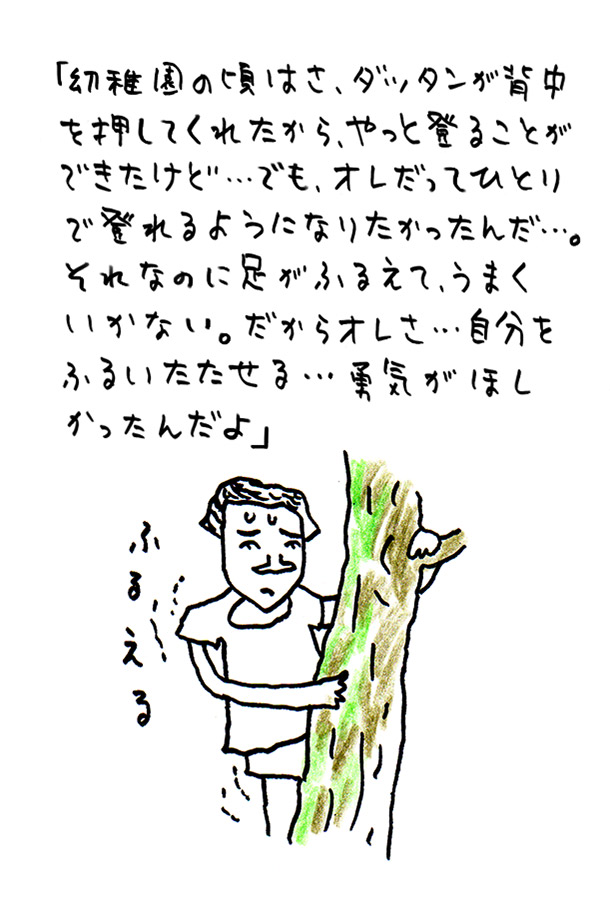 「幼稚園の頃はさ、ダッタンが背中
を押してくれたから、やっと登ることが
できたけど…でも、オレだってひとり
で登れるようになりたかったんだ…。
それなのに足がふるえて、うまく
いかない。だからオレさ…自分を
ふるいたたせる…勇気がほし
かったんだよ」
ふるえる